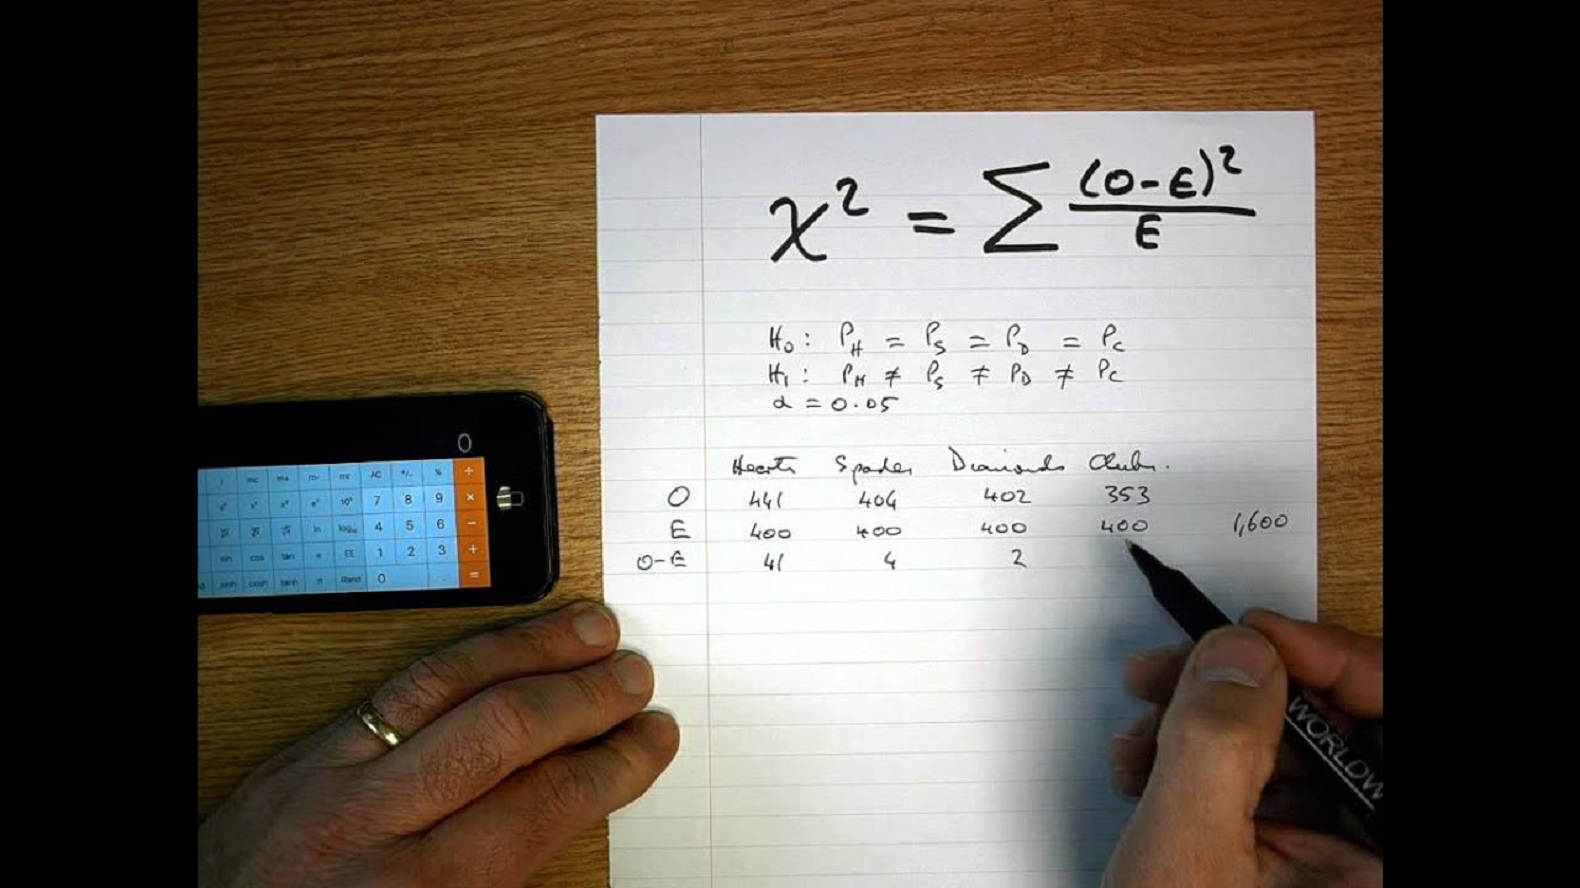 χ² = ∑ (O-E)² / E
H₀: P_H = P_S = P_D = P_C
H₁: P_H ≠ P_S ≠ P_D ≠ P_C
α = 0.05
Hearts Spades Diamonds Clubs.
O 441 404 402 353
E 400 400 400 400 1,600
O-E 41 4 2
0
mc m+ m- mr AC +/- % ÷
10ˣ 7 8 9 ×
ln log₁₀ 4 5 6 −
sin cos tan e EE 1 2 3 +
sinh cosh tanh π Rand 0 . =
WORLDW